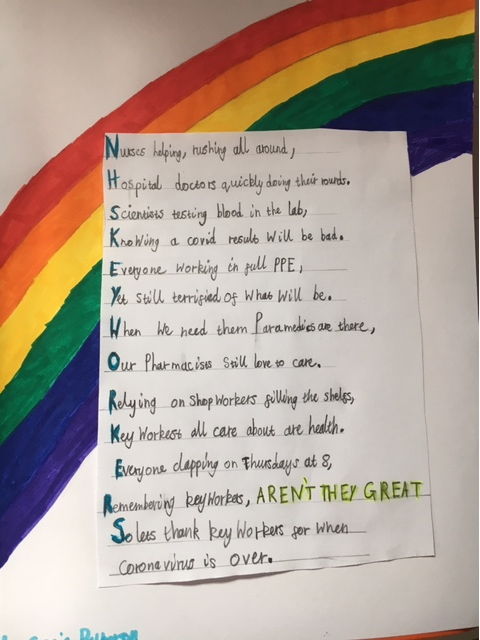 Nurses helping, rushing all around,
Hospital doctors quickly doing their rounds.
Scientists testing blood in the lab,
Knowing a covid result will be bad.
Everyone working in full PPE,
Yet still terrifiad of what will be.
When we need them Paramedics are there,
Our Pharmacises still love to care.
Relying on shop workers filling the shelfs,
Key workest all care about are health.
Everyone clapping on Thursdays at 8,
Remembering key workers, AREN'T THEY GREAT
So lets thank key workers for when
Coronavirus is over.